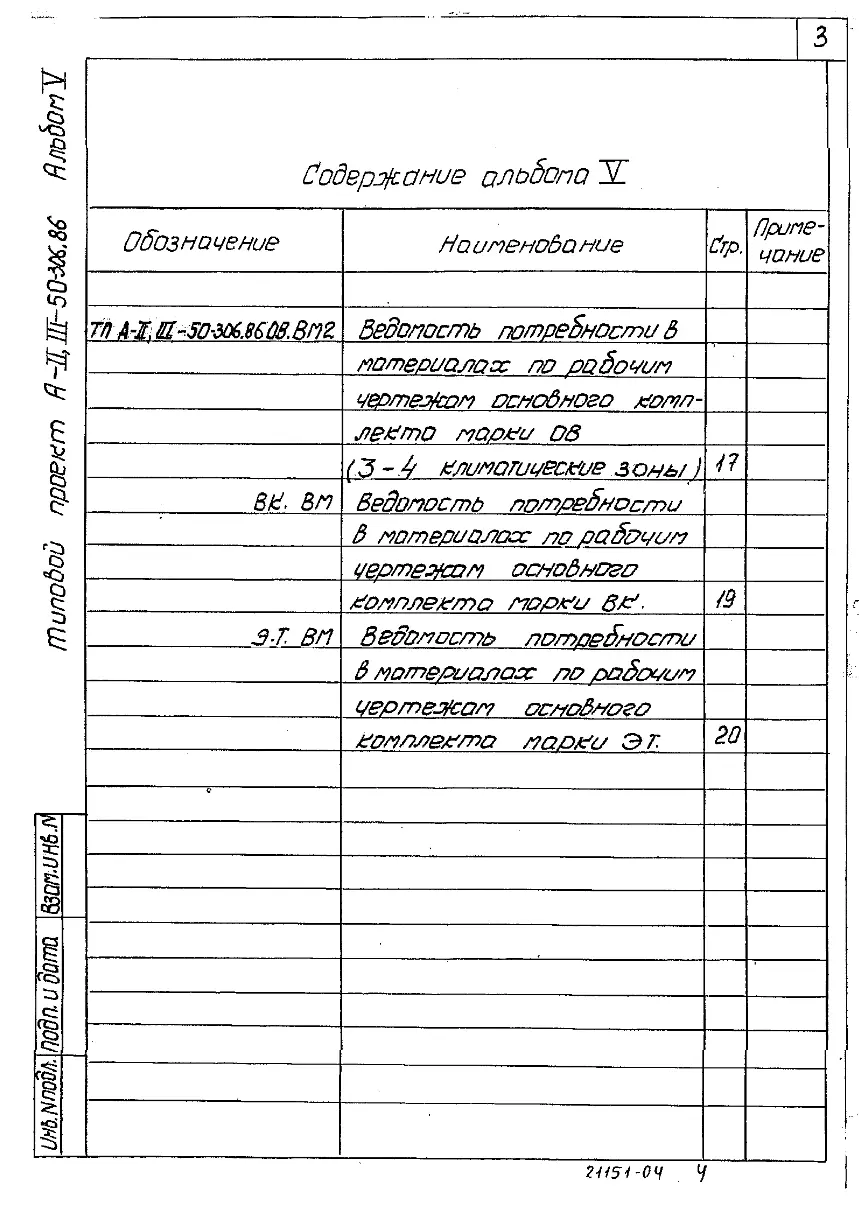 3
Типовой проект А-II, III-50-306.86 Альбом V
Содержание альбома V
Обозначение Наименование Стр. Приме-
чание
ТП А-II, III-50-306.86.ОВ.ВМ2 Ведомость потребности в
материалах по рабочим
чертежам основного комп-
лекта марки ОВ
(3-4 климатические зоны) 17
ВК. ВМ Ведомость потребности
в материалах по рабочим
чертежам основного
комплекта марки ВК. 19
Э.Т. ВМ Ведомость потребности
в материалах по рабочим
чертежам основного
комплекта марки ЭТ. 20
Взам.инв.N
Подп. и дата
Инв.Nподл.
21151-04 4